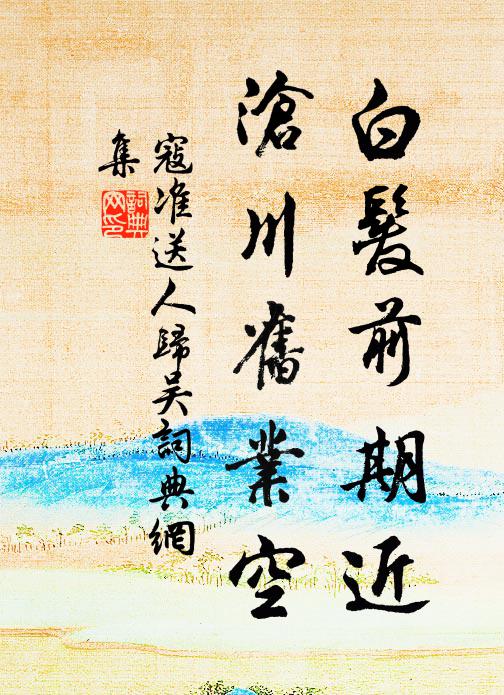 白髮前期近
滄川舊業空
寇准送人歸吳詞典網
集
詞典
网印